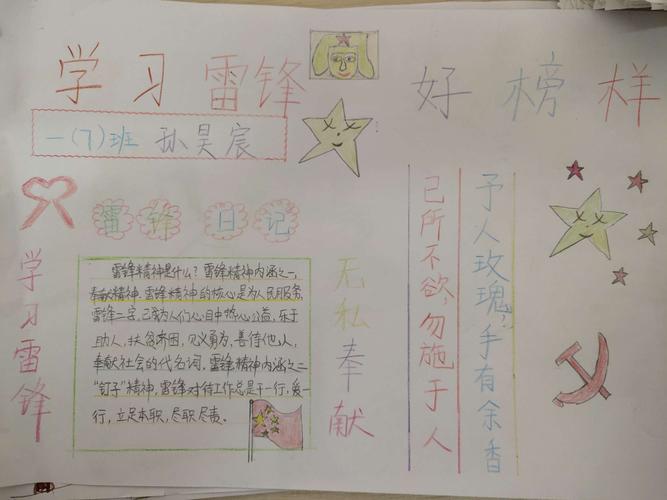 学习雷锋 好榜样
一(7)班 孙昊宸
雷锋日记
雷锋精神是什么？雷锋精神内涵之一，
奉献精神。雷锋精神的核心是为人民服务，
雷锋二字，已成为人们心目中热心公益，乐于
助人，扶贫济困，见义勇为，善待他人，
奉献社会的代名词。雷锋精神内涵之二
“钉子”精神，雷锋对待工作总是干一行，爱一
行，立足本职，尽职尽责。
学习雷锋
无私奉献
己所不欲，勿施于人
予人玫瑰，手有余香